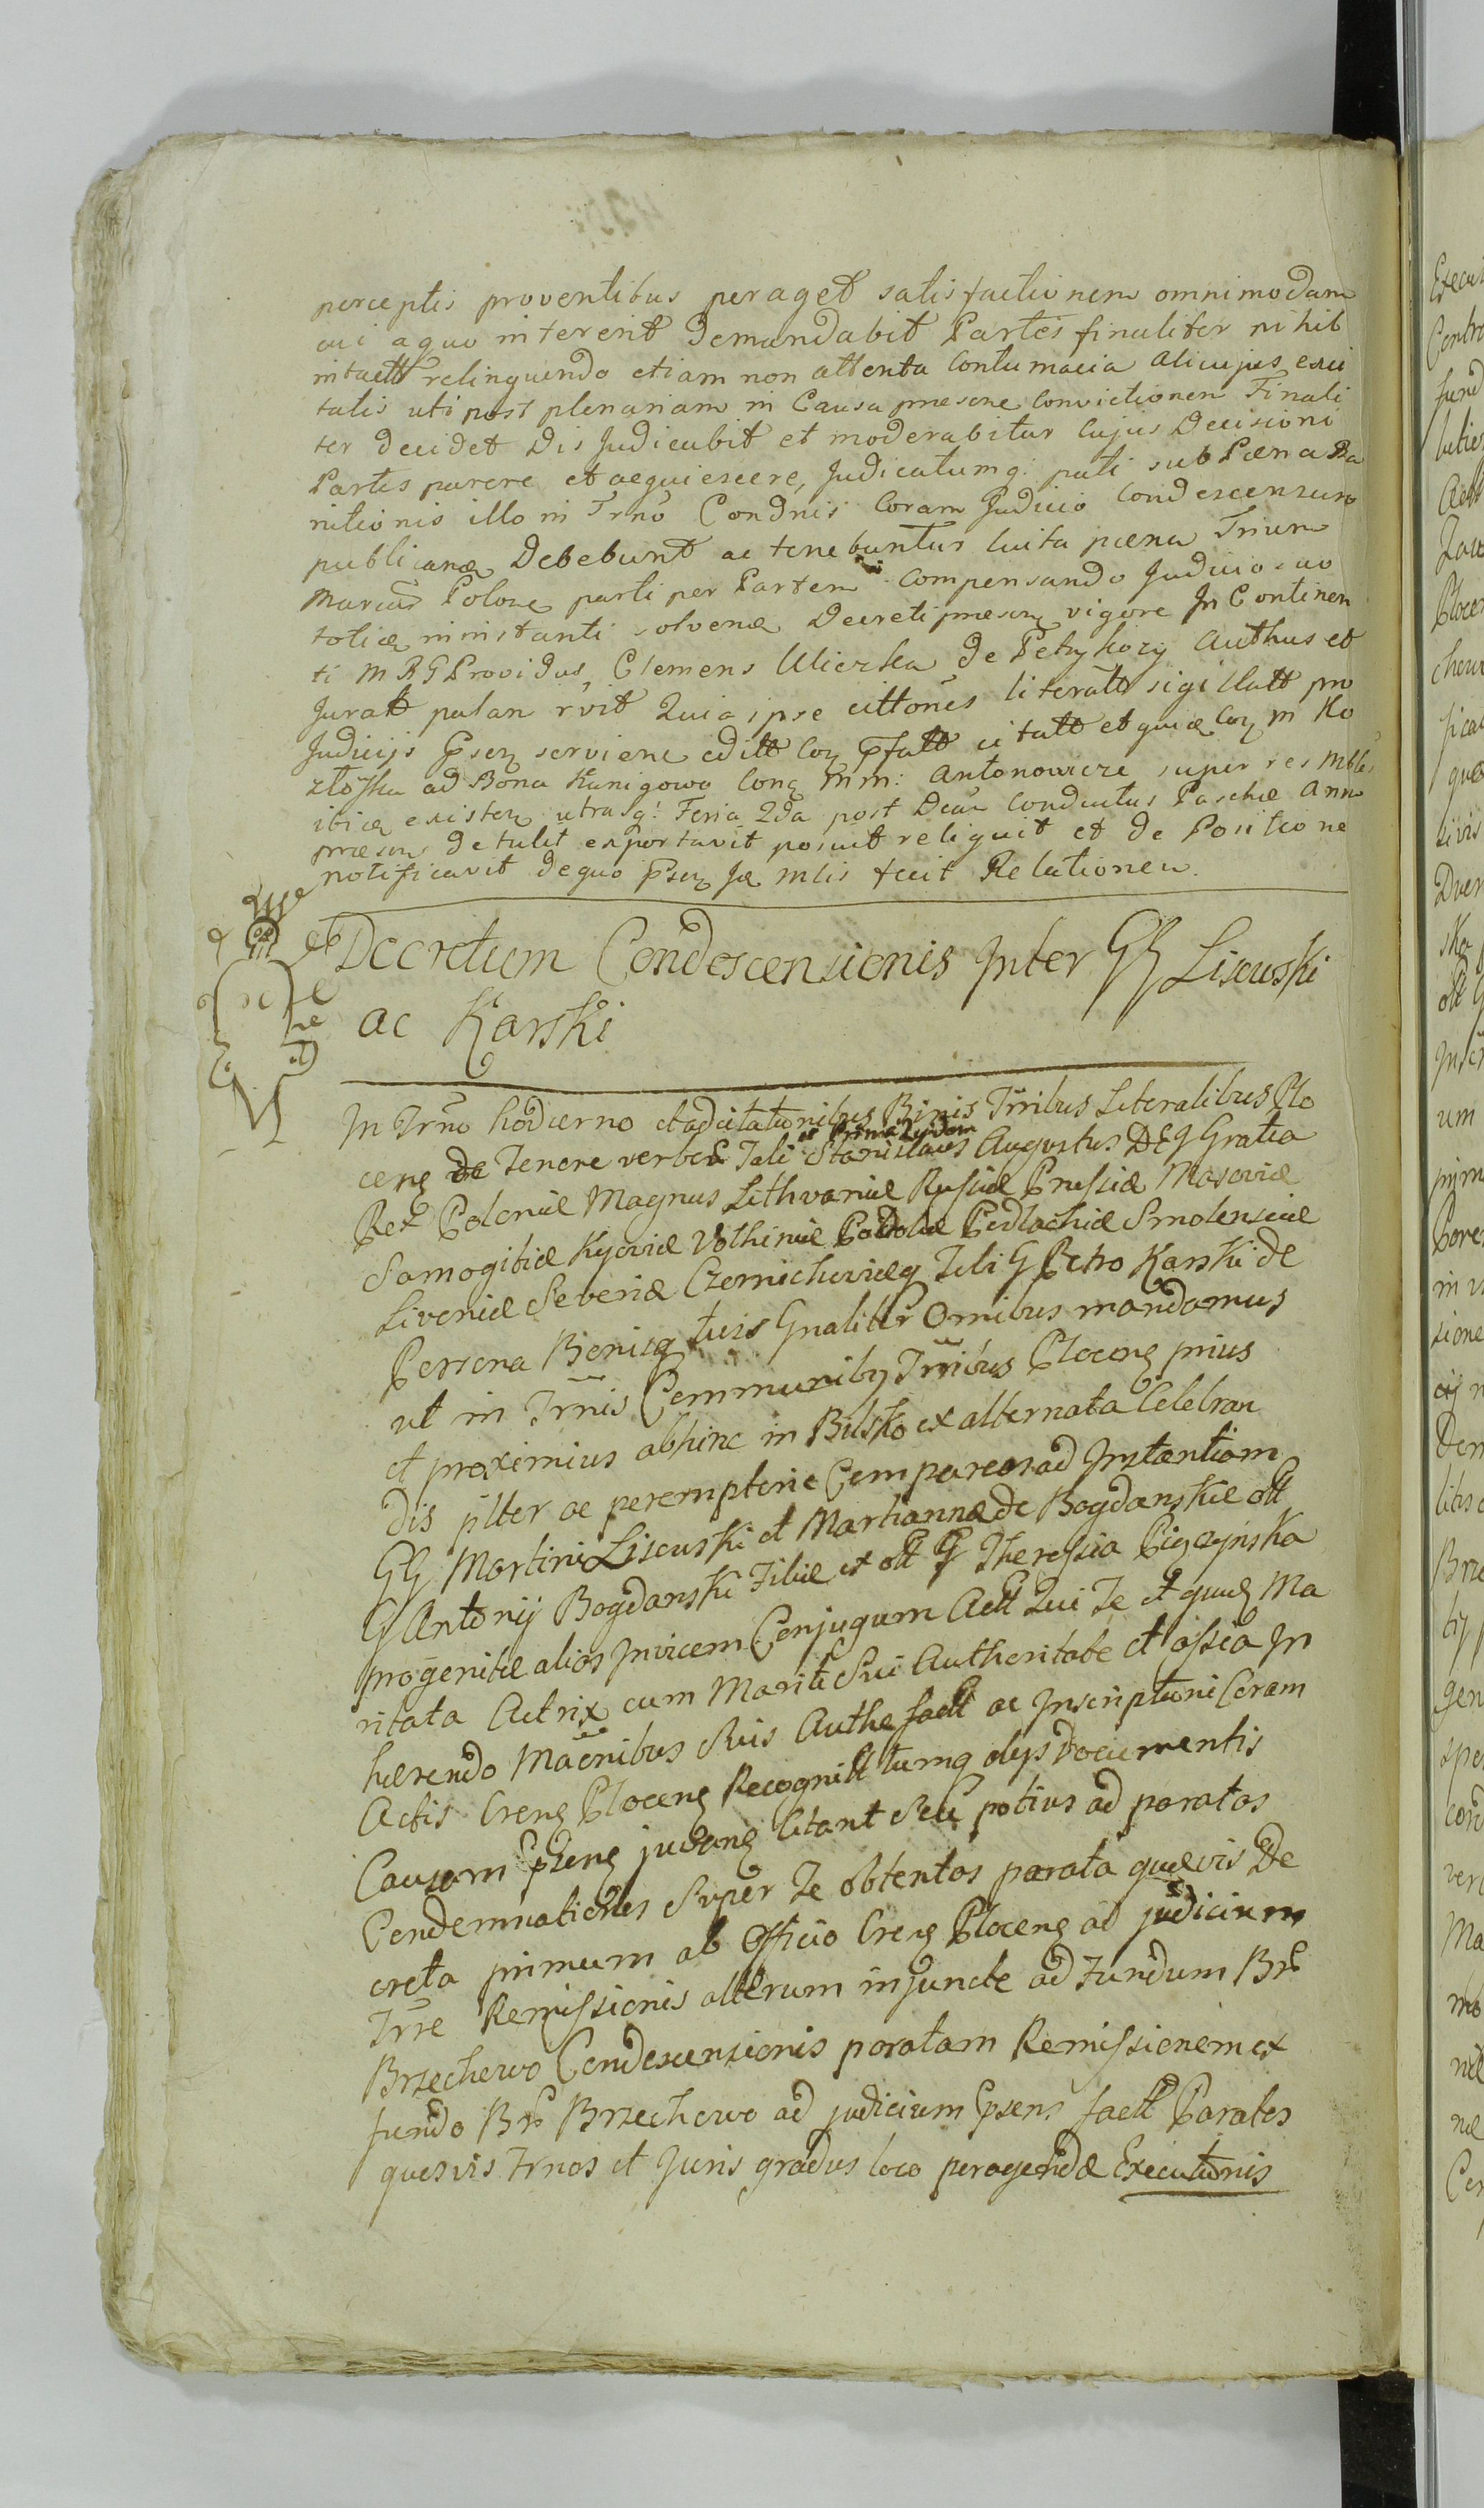 perceptis proventibus peraget satisfactionem omnimodam
cui a quo intererit demandabit Partes finaliter nihil
intactt relinquendo etiam non attenta Contumacia alicujus exci
talis uti post plenariam in Causa praesene Convictionem Finali
ter decidet Dis Judicabit et moderabitur Cujus Decisioni
Partes parere et acquiescere, Judicatumq: pati sub Paena Ba
nitionis illo in Trno Condnis Coram Judicio Condescensuro
publicanae Debebunt ac tenebuntur luita paena Trium
Marcar Polone parti per Partem Compensando Judicio vo
totiae ninstanti solvenae Decreti praesene vigore In Continen
ti M R G Providus Clemens Ulierka de Petrykozy Authus et
Juratt palam rvit Quia ipse cittones literatt sigillatt pro
Judicijs Psen serviene editt Coq pfatt citatt et quae Coq in Ko
złosku ad Bona Kunigowo Conq Mm: Antonowicze super res mbles
ibiae existen utrasq: Feria 2da post Dcam Conductus Paschae Ann
praesens detulit exportavit posuit reliquit et de Positione
notificavit de quo Psen Jae Mlis fecit Relationem.
Decretum Condescensionis Inter GG Liscuski
ac Karski
In Trno hodierno et ad citationibus Binis Trribus Literalibus Plo
et Prima Quidem
cenq de Tenore verbor Tali Stanislaus Augustus DEJ Gratia
Rex Poloniae Magnus Lithvaniae Russiae Prussiae Masoviae
Samogitiae Kyoviae Volhiniae Podoliae Podlachiae Smolensciae
Livoniae Severiae Czernichoviaeq Tibi G Petro Karski de
Persona Bonisq tuis Gnaliter Omnibus mandamus
ut in Trnis Communiby Trribus Plocenq prius
et proximius abhinc in Bilsko ex alternata Celebran
dis plter ac peremptorie Compareas ad Instantiam
GG Martini Liscuski et Mariannae de Bogdanskie ott
G Antonij Bogdanski Filiae ex ott G Theressia Pigczynska
progenitae alias Invicem Conjugum Actt Qui Te et quaeq Ma
ritata Actrix cum Mariti Sui Authoritate et assia In
haerendo Maenibus Suis Authe factt ac Inscriptioni Coram
Actis Crenq Plocenq Recognitt tumq alys Documentis
Causam Psenq juvanq Citant Seu potius ad paratas
Condemnationes Super Te obtentas parata quaevis De
creta primum ab Officio Crenq Plocenq ad judicium
Trre Remissionis alterum injuncte ad Fundum Br
Brzechowo Condescensionis paratam Remissionem ex
fundo Br Brzechowo ad judicium Psens factt Paratos
quosvis Trnos et Juris gradus loco peragendae Executionis